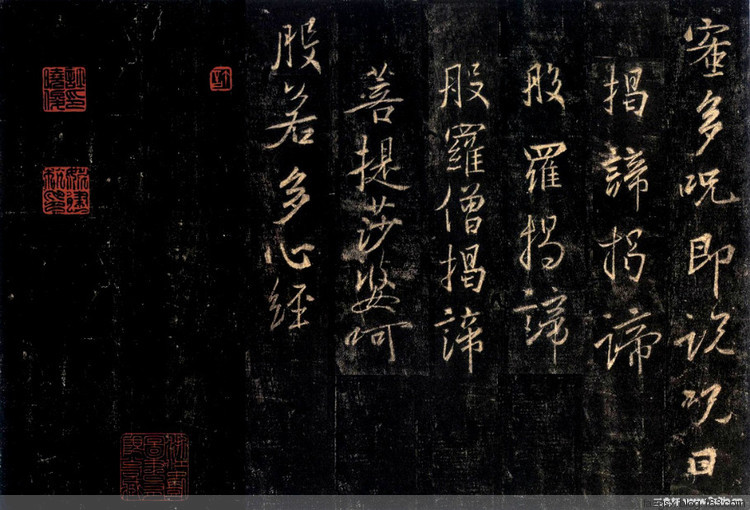 蜜多呪即說呪曰
揭諦揭諦
般羅揭諦
般羅僧揭諦
菩提莎婆呵
般若多心經